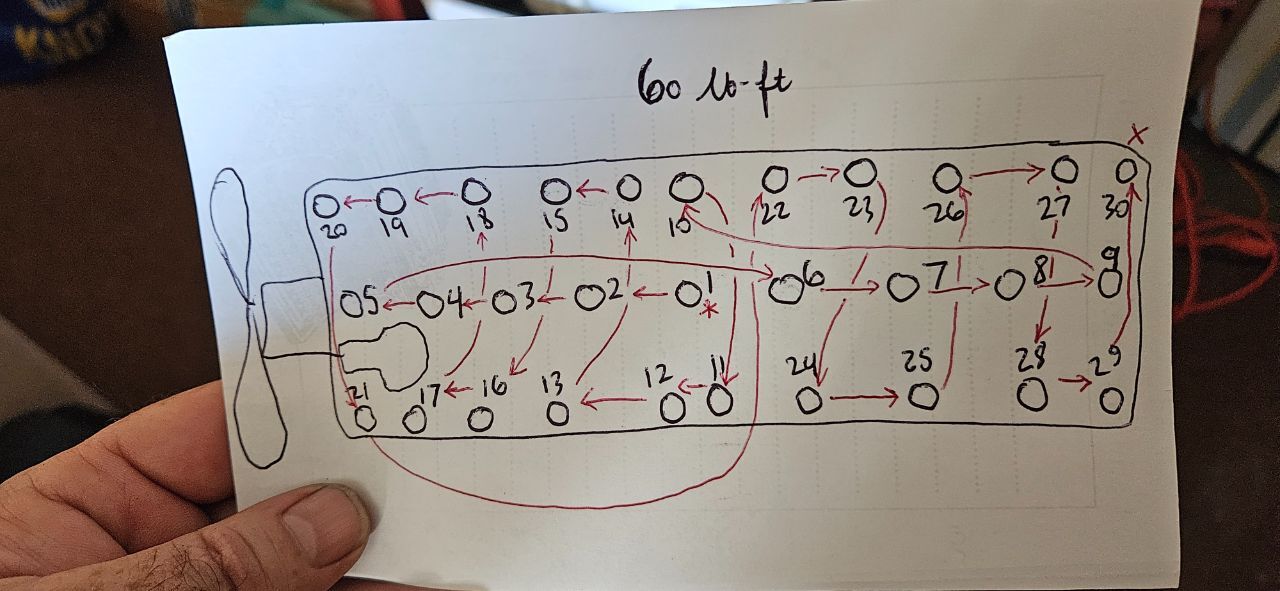 60 lb-ft
X
20 19 18 15 14 10 22 23 26 27 30
5 4 3 2 1 6 7 8 9
*
21 17 16 13 12 11 24 25 28 29